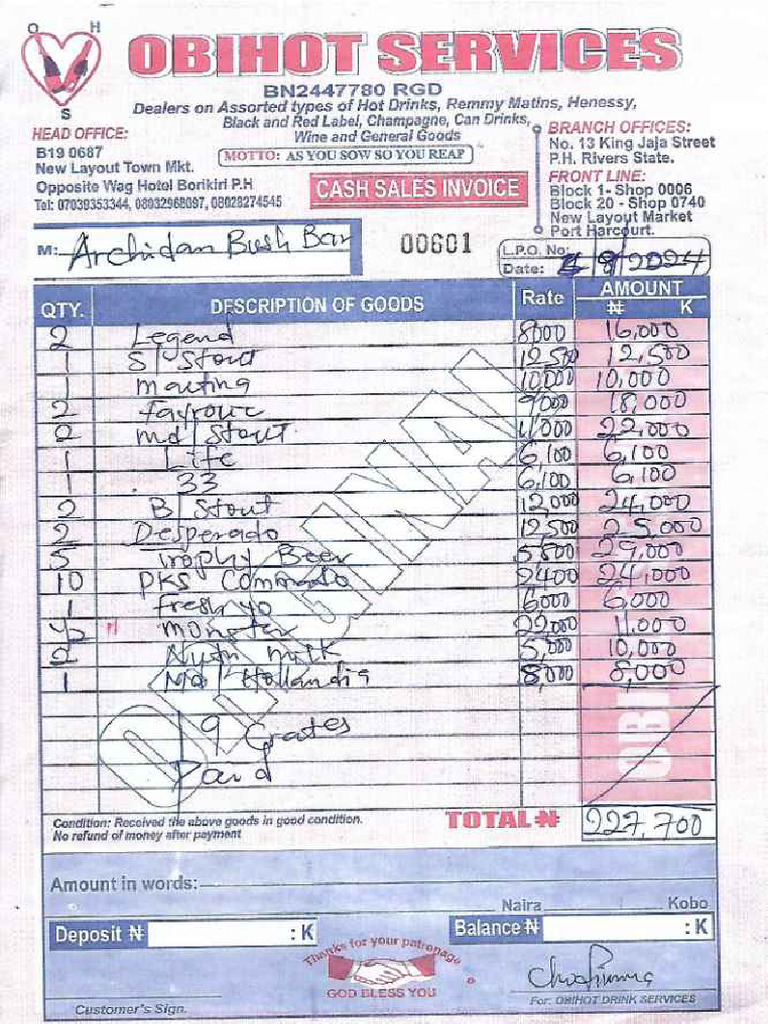 O H
S
OBIHOT SERVICES
BN2447780 RGD
Dealers on Assorted types of Hot Drinks, Remmy Matins, Henessy,
Black and Red Label, Champagne, Can Drinks,
Wine and General Goods
MOTTO: AS YOU SOW SO YOU REAP
HEAD OFFICE:
B19 0687
New Layout Town Mkt.
Opposite Wag Hotel Borikiri P.H
Tel: 07039353344, 08032968097, 08028274545
CASH SALES INVOICE
BRANCH OFFICES:
No. 13 King Jaja Street
P.H. Rivers State.
FRONT LINE:
Block 1- Shop 0006
Block 20 - Shop 0740
New Layout Market
Port Harcourt.
M: Archidan Bush Bar
00601
L.P.O. No:
Date: /8/2024
QTY. DESCRIPTION OF GOODS Rate AMOUNT
₦ K
2 Legend 8,000 16,000
1 S/Stout 12,500 12,500
1 10,000 10,000
2 9,000 18,000
2 md/Stout 11,000 22,000
1 Life 6,100 6,100
1 33 6,100 6,100
2 B/Stout 12,000 24,000
2 Desperado 12,500 25,000
5 Trophy Beer 29,000
10 PKS Commando 2400 24,000
1 fresh yo 6,000 6,000
½ monster 22,000 11,000
2 milk 5,000 10,000
1 Hollandia 8,000 8,000
9 Crates
Paid
ORIGINAL
OBI
Condition: Received the above goods in good condition.
No refund of money after payment
TOTAL ₦ 227,700
Amount in words:
Naira Kobo
Deposit ₦ : K
Balance ₦ : K
Thanks for your patronage
GOD BLESS YOU
Customer's Sign.
For: OBIHOT DRINK SERVICES